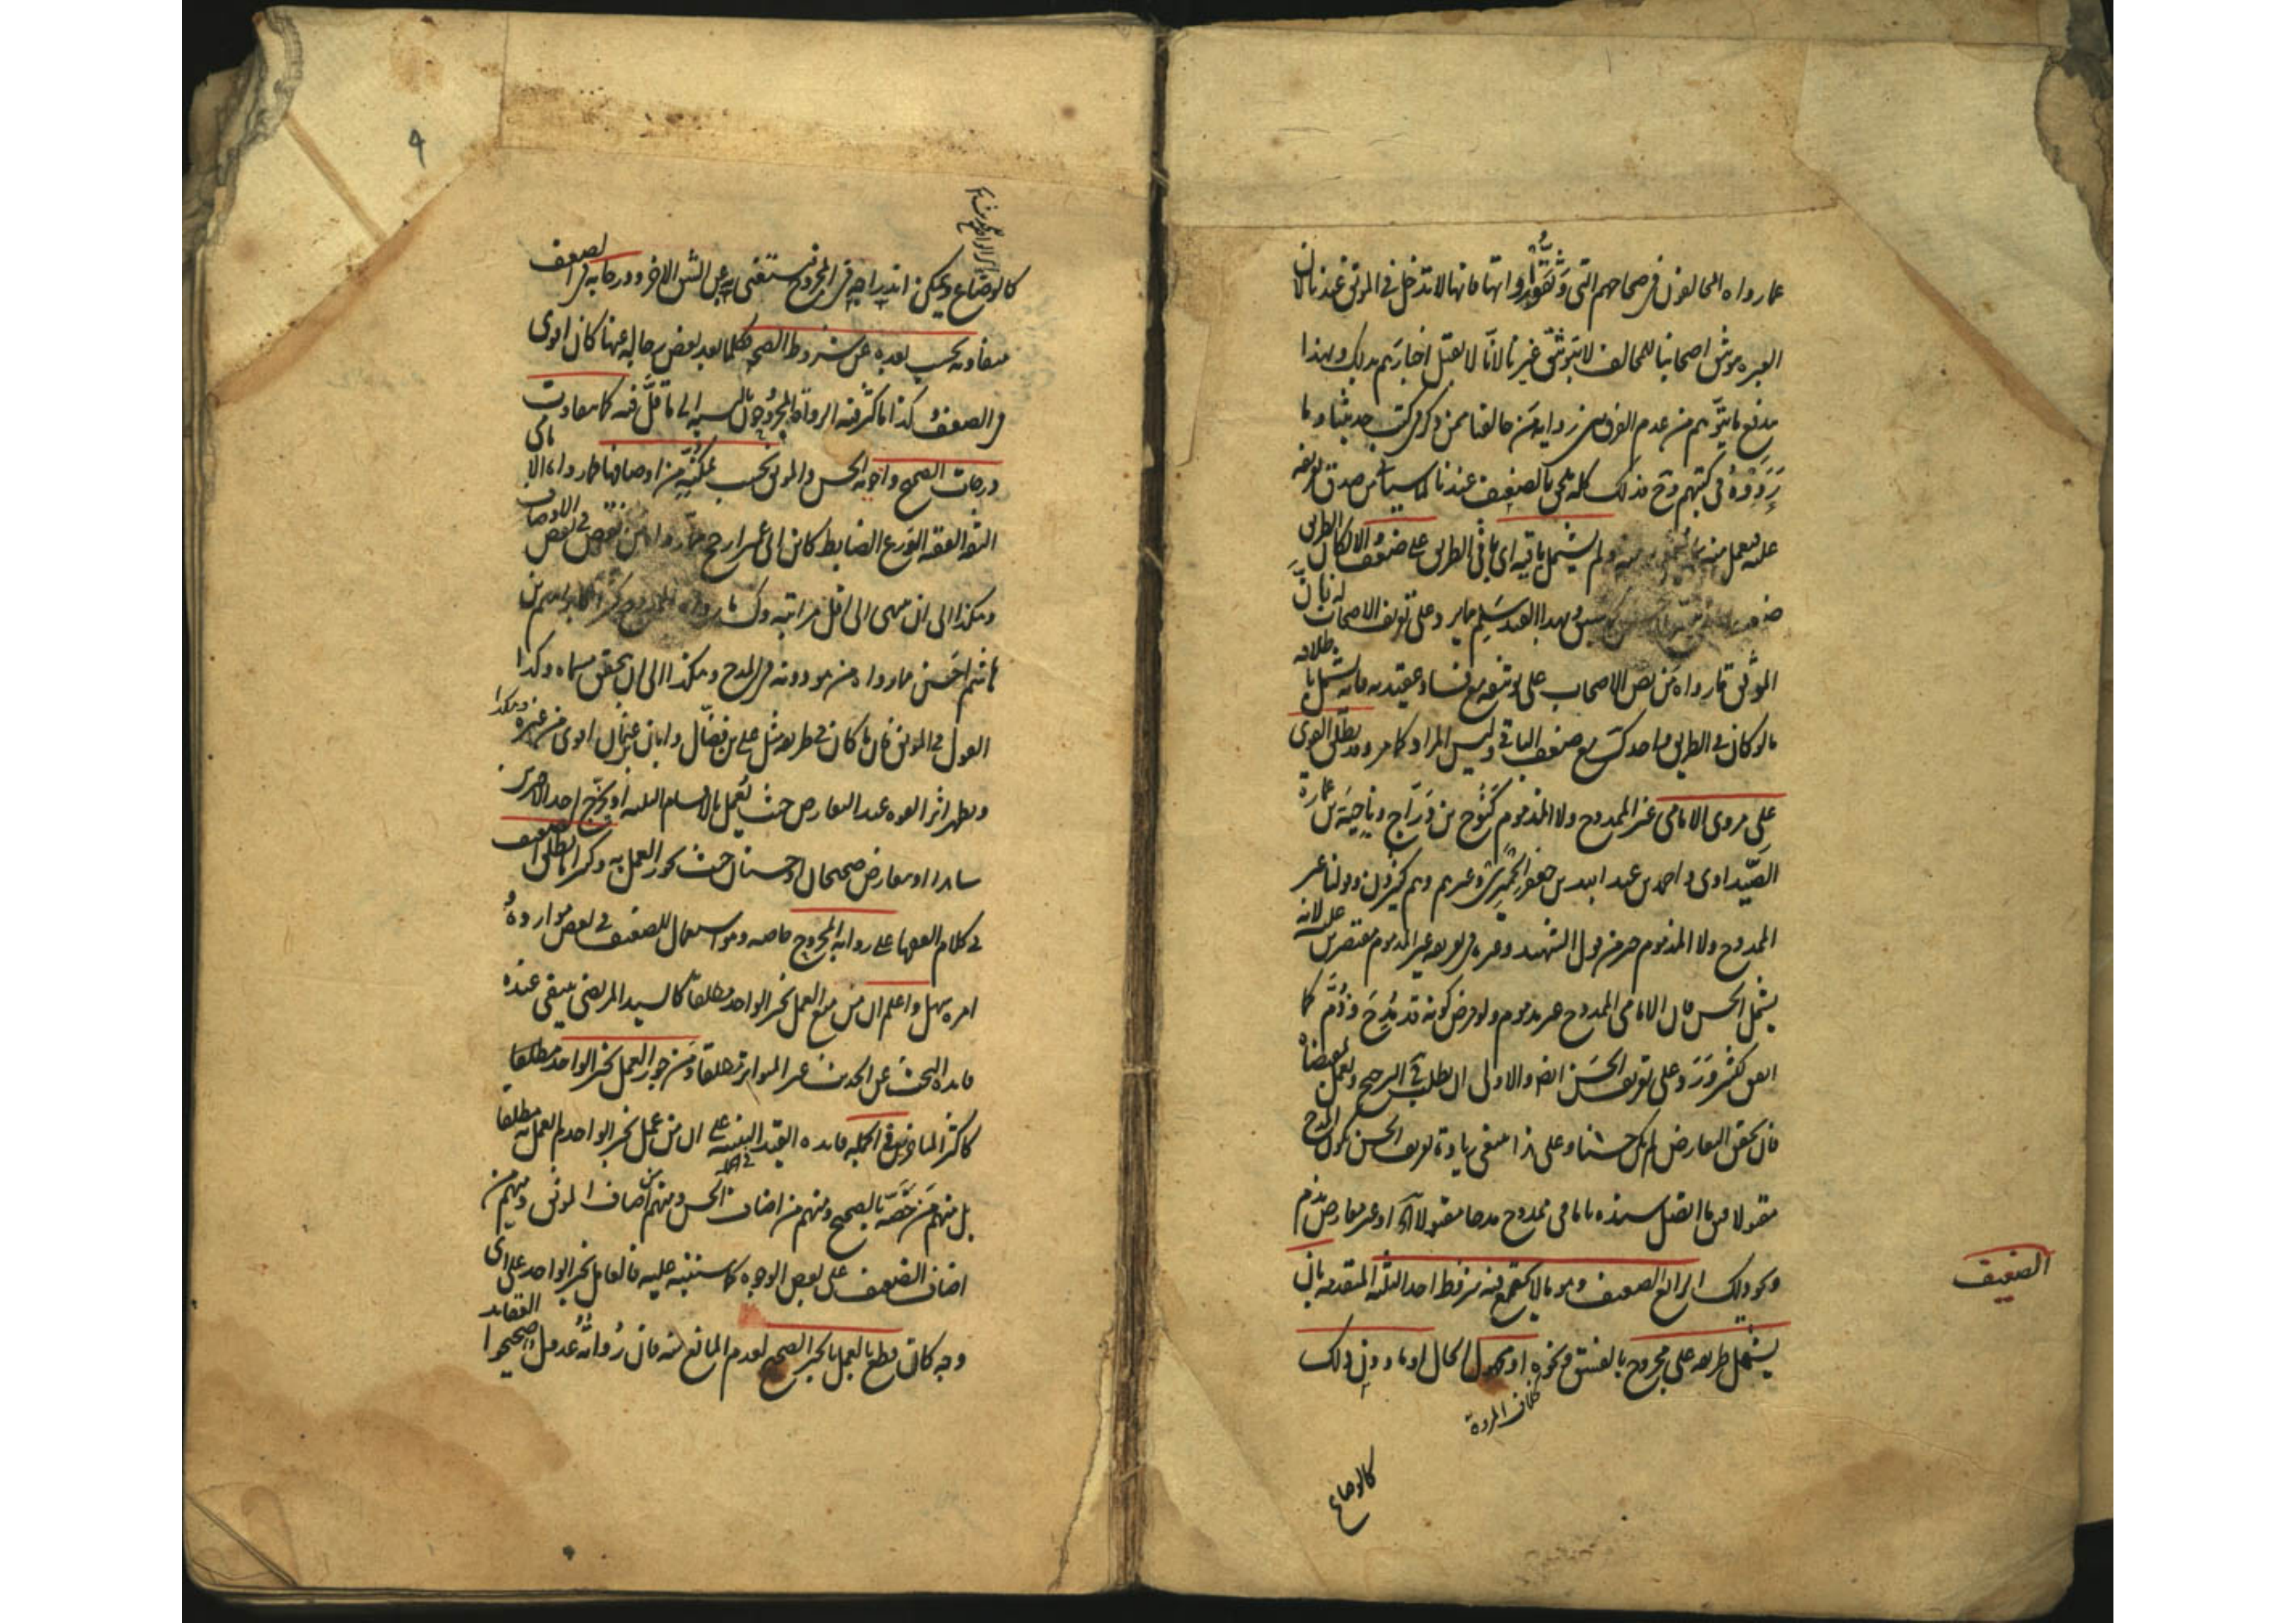 عما رواه المخالفون في صحاحهم التي وثقوا رواتها فانها لا تدخل في الموثق عندنا لان
العبرة بتوثيق اصحابنا للمخالف لا بتوثيق غيرنا لانا لا نقبل اخبارهم بذلك وبهذا
يندفع ما يتوهم من عدم الفرق بين رواية من خالفنا ممن ذكر في كتب حديثنا وما
رووه في كتبهم وح فذلك كله يلحق بالضعيف عندنا لما سيأتي من صدق تعريفه
عليه فيعمل منه بما يعمل به منه ولم يشتمل باقيه اي باقي الطريق على ضعف والا لكان الطريق
ضعيفا وبهذا القيد سلم مما يرد على تعريف الاصحاب له بان
الموثق ما رواه من نص الاصحاب على توثيقه مع فساد عقيدته فانه يشمل باطلاقه
ما لو كان في الطريق واحد كذلك مع ضعف الباقي وليس المراد كما مر وقد يطلق القوي
على مروي الامامي غير الممدوح ولا المذموم كنوح بن دراج وناجية بن عمارة
الصيداوي واحمد بن عبد الله بن جعفر الحميري وغيرهم وهم كثيرون وقولنا غير
الممدوح ولا المذموم خير من قول الشهيد وغيره في تعريفه غير المذموم مقتصرين عليه لانه
يشمل الحسن فان الامامي الممدوح غير مذموم ولو فرض كونه قد مدح وذم كما
اتفق لكثير ورد على تعريف الحسن ايضا والاولى ان يطلب ح الترجيح ويعمل بمقتضاه
فان تحقق التعارض لم يكن حسنا وعلى هذا فينبغي زيادة تعريف الحسن بكون المدح
مقبولا فيق ما اتصل سنده بامامي ممدوح مدحا مقبولا الخ او غير معارض بذم
ونحو ذلك الرابع الضعيف وهو ما لا يجتمع فيه شروط احد الثلثة المتقدمة بان
يشتمل طريقه على مجروح بالفسق ونحوه او مجهول الحال او ما دون ذلك
خلاف المروة
كالوضاع
الضعيف
٩
كالوضاع ويمكن اندراجه في المجروح فيستغني به عن الشق الاخر ودرجاته في الضعف
متفاوتة بحسب بعده عن شروط الصحة فكلما بعد بعض رجاله عنها كان اقوى
في الضعف وكذا ما كثر فيه الرواة المجروحون بالنسبة الى ما قل فيه كما يتفاوت
درجات الصحيح واخويه الحسن والموثق بحسب تمكنه من اوصافها فما رواه الامامي
الثقة الفقيه الورع الضابط كابن ابي عمير ارجح مما رواه من نقص في بعض الاوصاف
وهكذا الى ان ينتهي الى اقل مراتبه وكذا ما رواه الممدوح كثيرا كابراهيم بن
هاشم احسن مما رواه من هو دونه في المدح وهكذا الى ان يتحقق مسماه وكذا
القول في الموثق فان ما كان في طريقه مثل علي بن فضال وابان بن عثمان اقوى من غيره وهكذا
ويظهر اثر القوة عند التعارض حيث يعمل بالاقسام الثلثة او يخرج احد الاخيرين
شاهدا او يتعارض صحيحان او حسنان حيث يجوز العمل به وكثيرا ما يطلق الضعيف
في كلام الفقهاء على رواية المجروح خاصة وهو استعمال للضعيف في بعض موارده
امره سهل واعلم ان من منع العمل بخبر الواحد مطلقا كالسيد المرتضى ينتفي عنده
فائدة البحث عن الحديث غير المتواتر مطلقا ومن جوز العمل بخبر الواحد مطلقا
كاكثر المتاخرين في الجملة فائدة القيد التنبيه على ان من عمل بخبر الواحد لم يعمل به مطلقا
بل منهم من خصه بالصحيح ومنهم من اضاف الحسن ومنهم من اضاف الموثق ومنهم من
اضاف الضعيف على بعض الوجوه كما سننبه عليه فالعامل بخبر الواحد على اي
وجه كان قطع بالعمل بالخبر الصحيح لعدم المانع منه فان رواته عدول صحيحوا العقايد